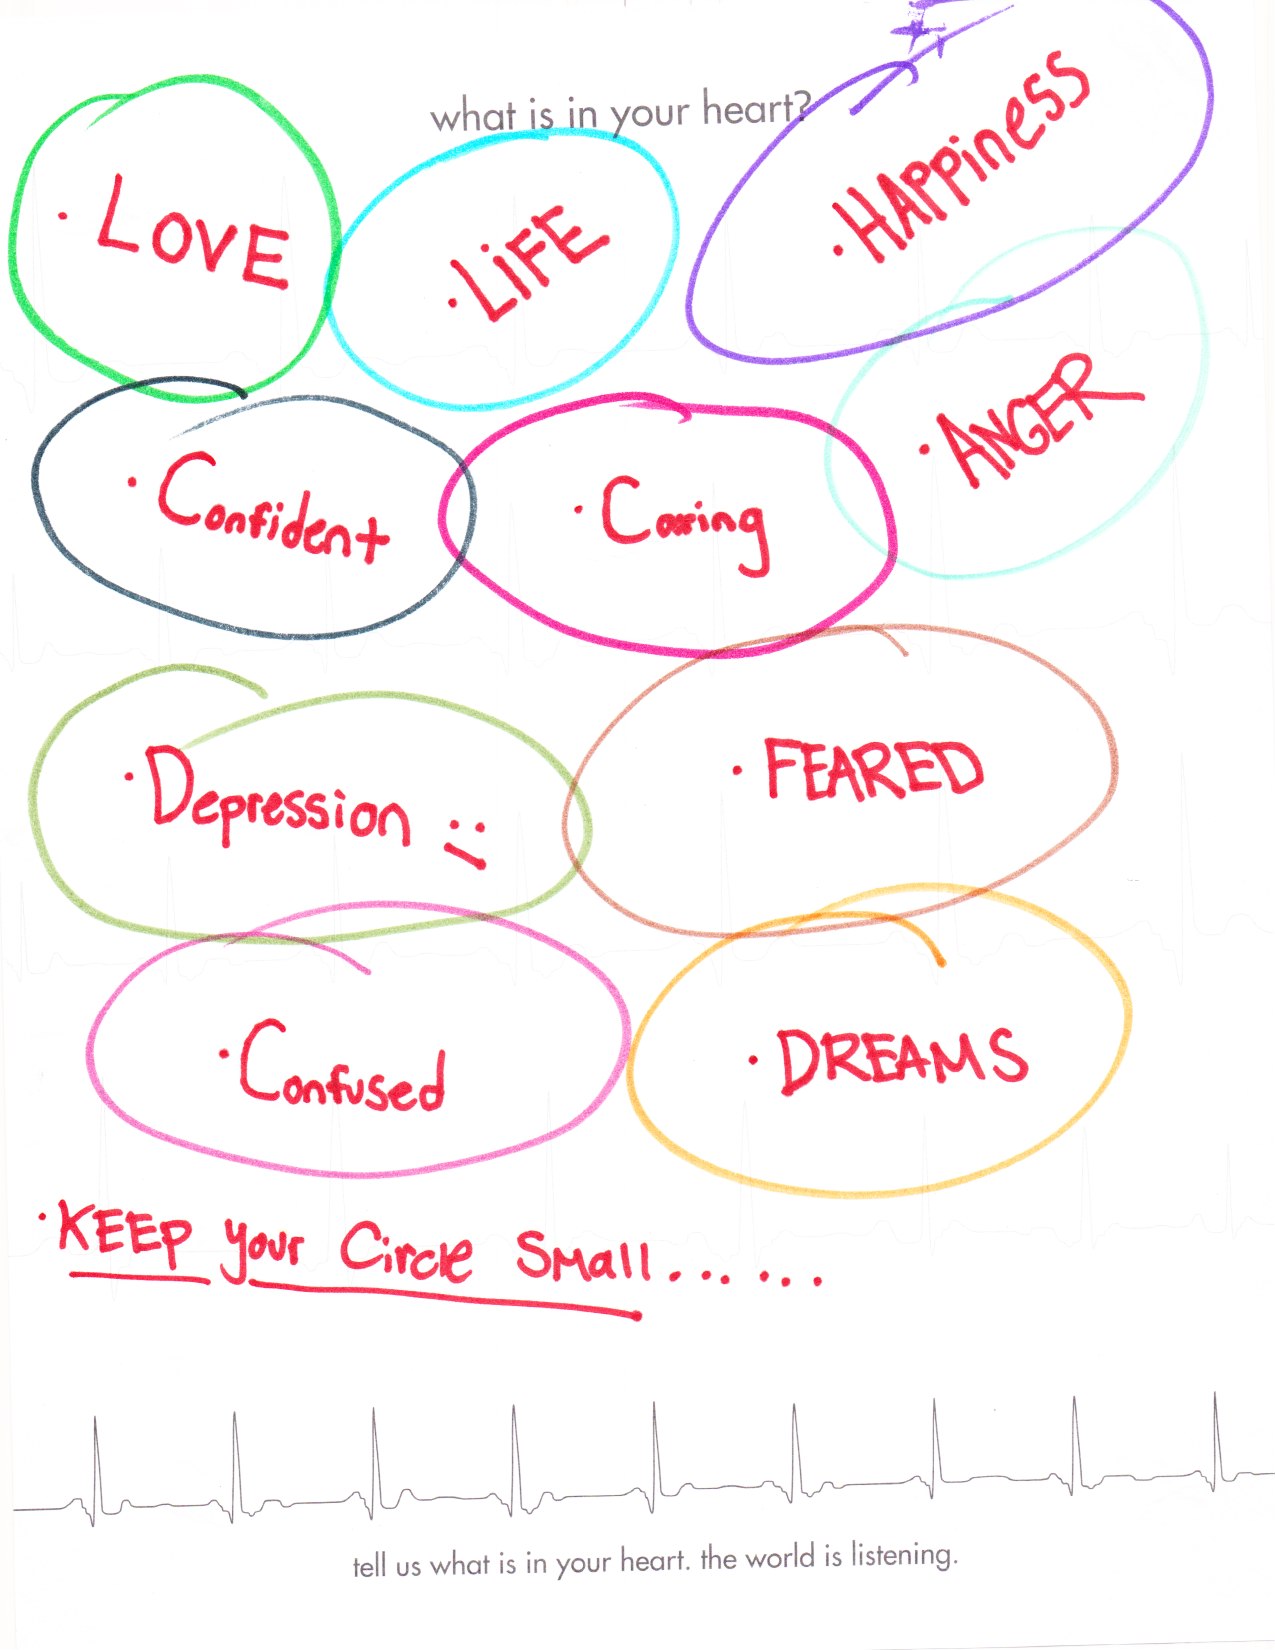 what is in your heart?
• LOVE
• LiFE
• HAPPiness
• ANGER
• Confident
• Caring
• Depression :\
• FEARED
• Confused
• DREAMS
• KEEP your Circle Small......
tell us what is in your heart. the world is listening.